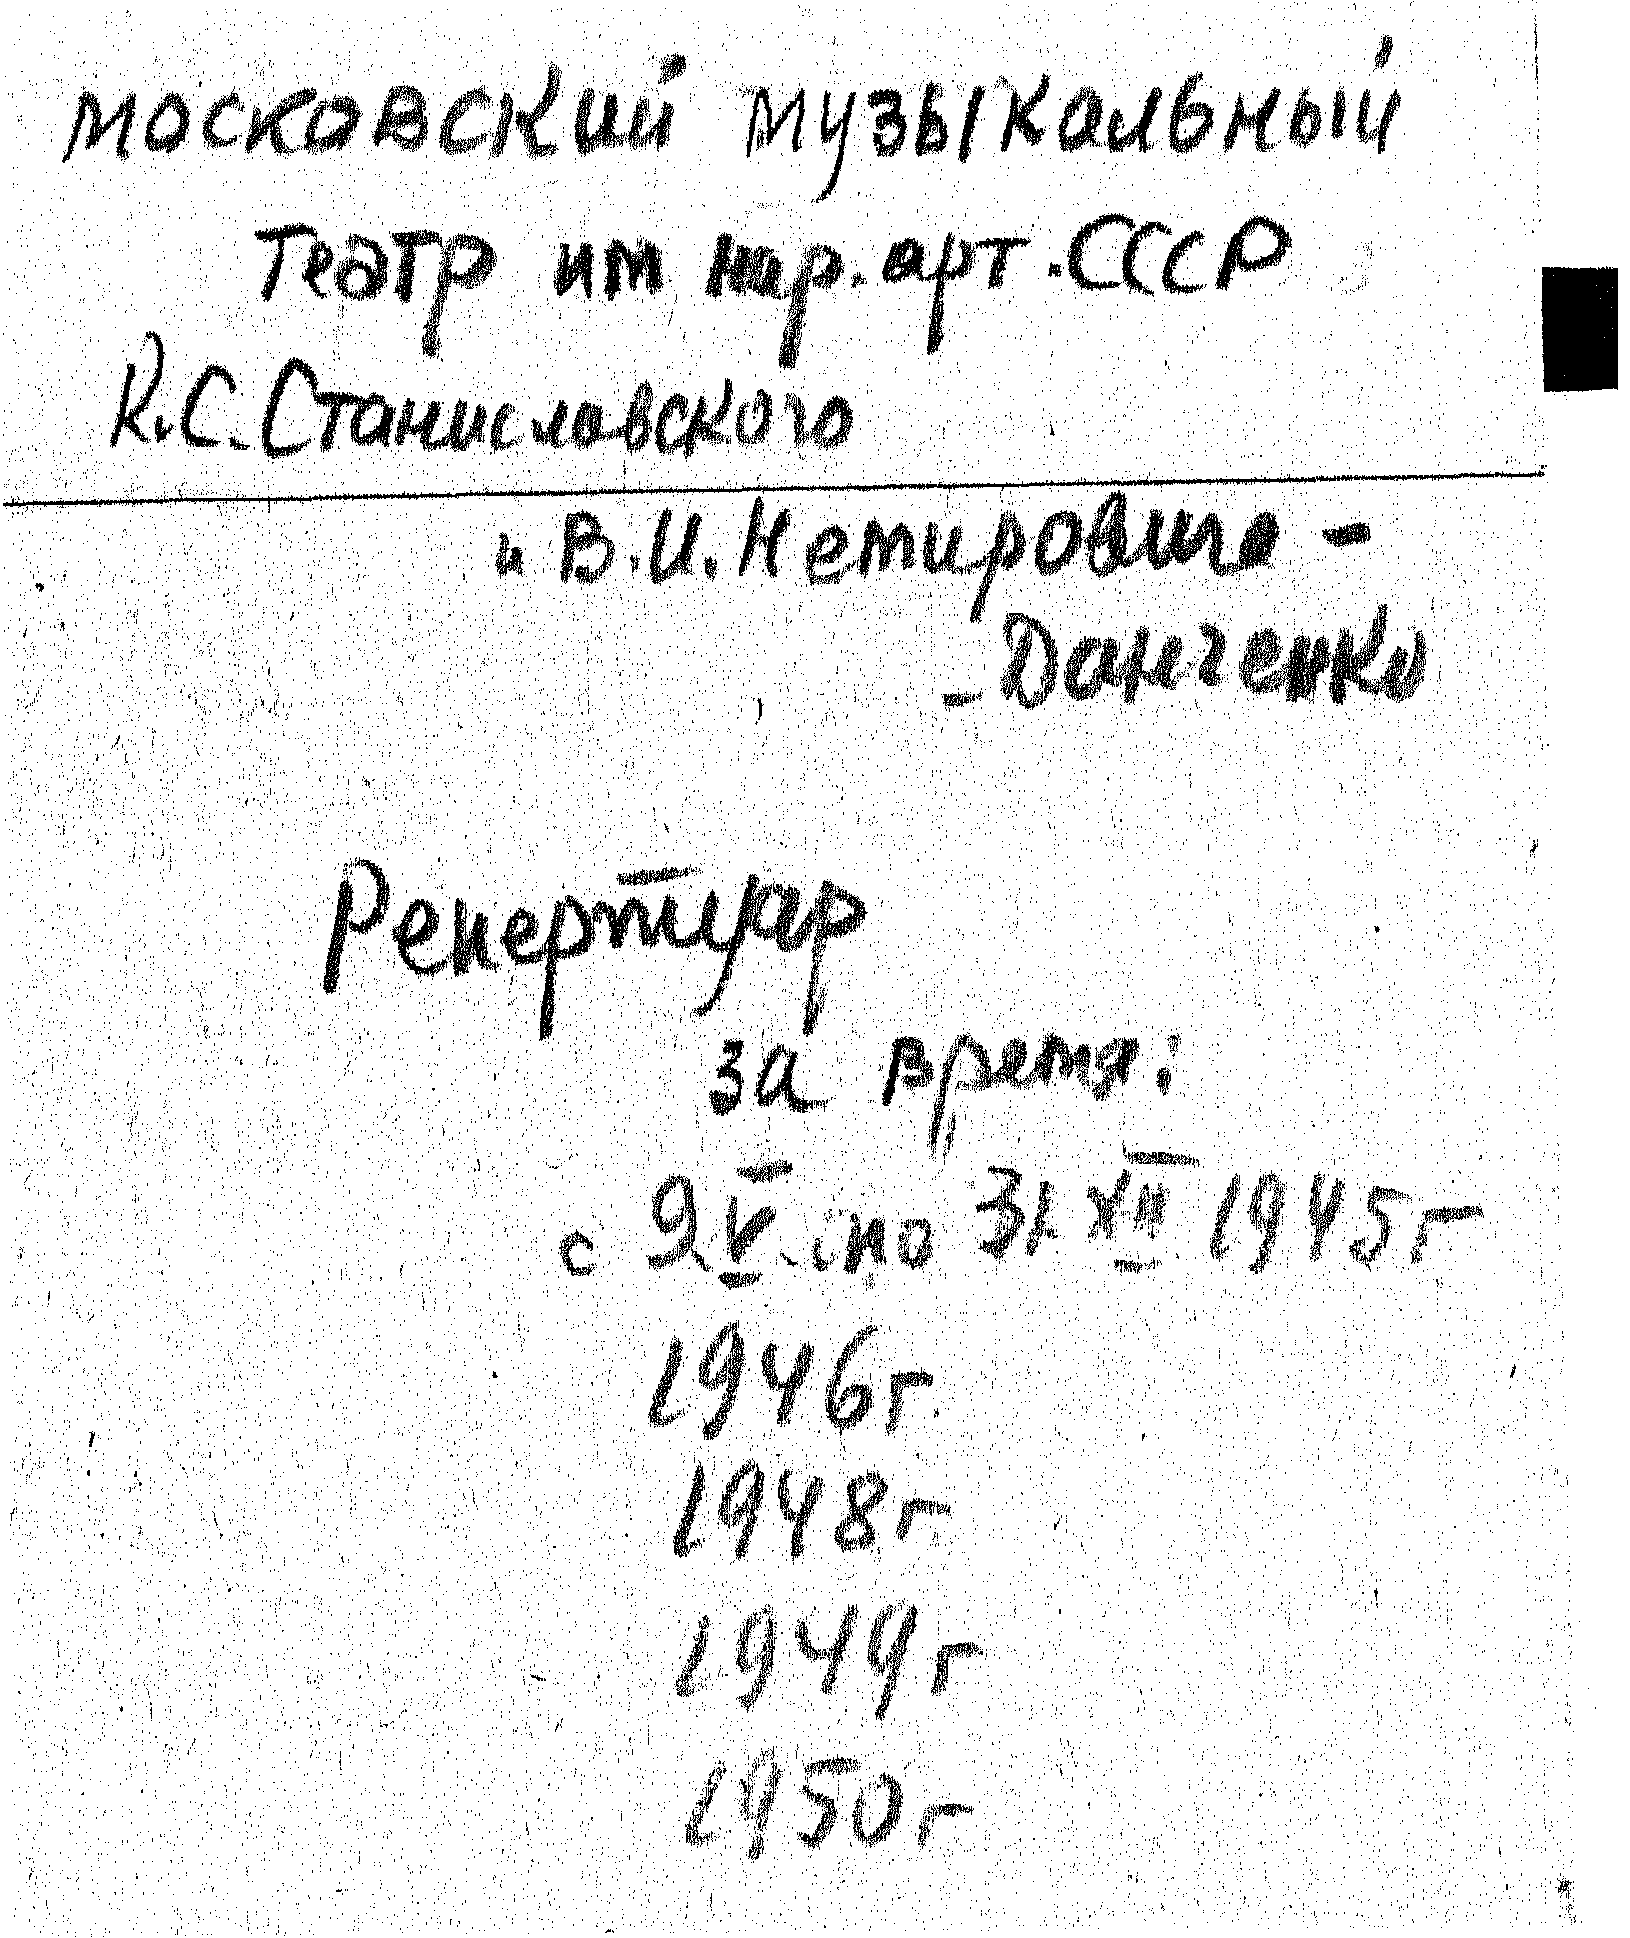 московский музыкальный
Театр им нар. арт. СССР
К.С. Станиславского
и В.И. Немировича -
- Данченко
Репертуар
за время:
с 9 V по 31 XII 1945г
1946г
1948г
1949г
1950г